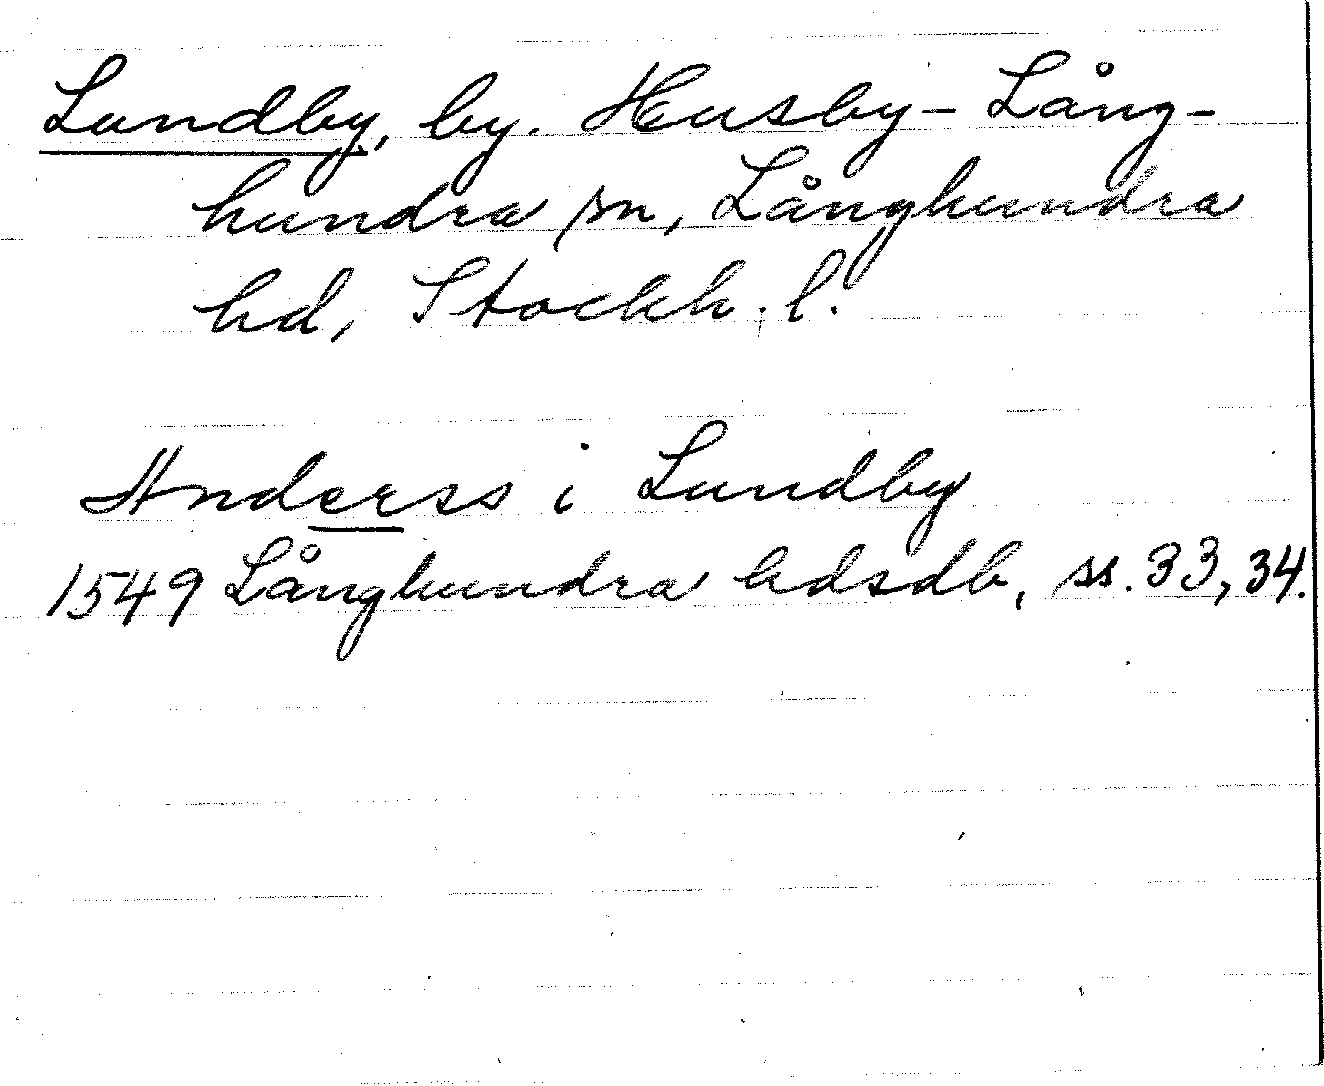 Lundby, by. Husby-Lång-
hundra sn, Långhundra
hd, Stockh. l.
Anderss i Lundby
1549 Långhundra hdsdb, ss. 33, 34.